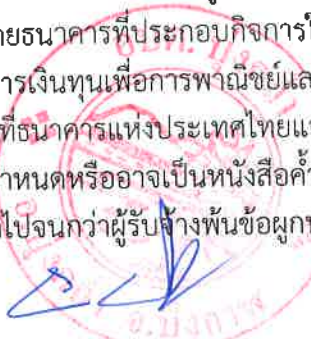 ายธนาคารที่ประกอบกิจการใ
ารเงินทุนเพื่อการพาณิชย์แล
ที่ธนาคารแห่งประเทศไทยแ
ำหนดหรืออาจเป็นหนังสือค้ำ
ไปจนกว่าผู้รับจ้างพ้นข้อผูกพ